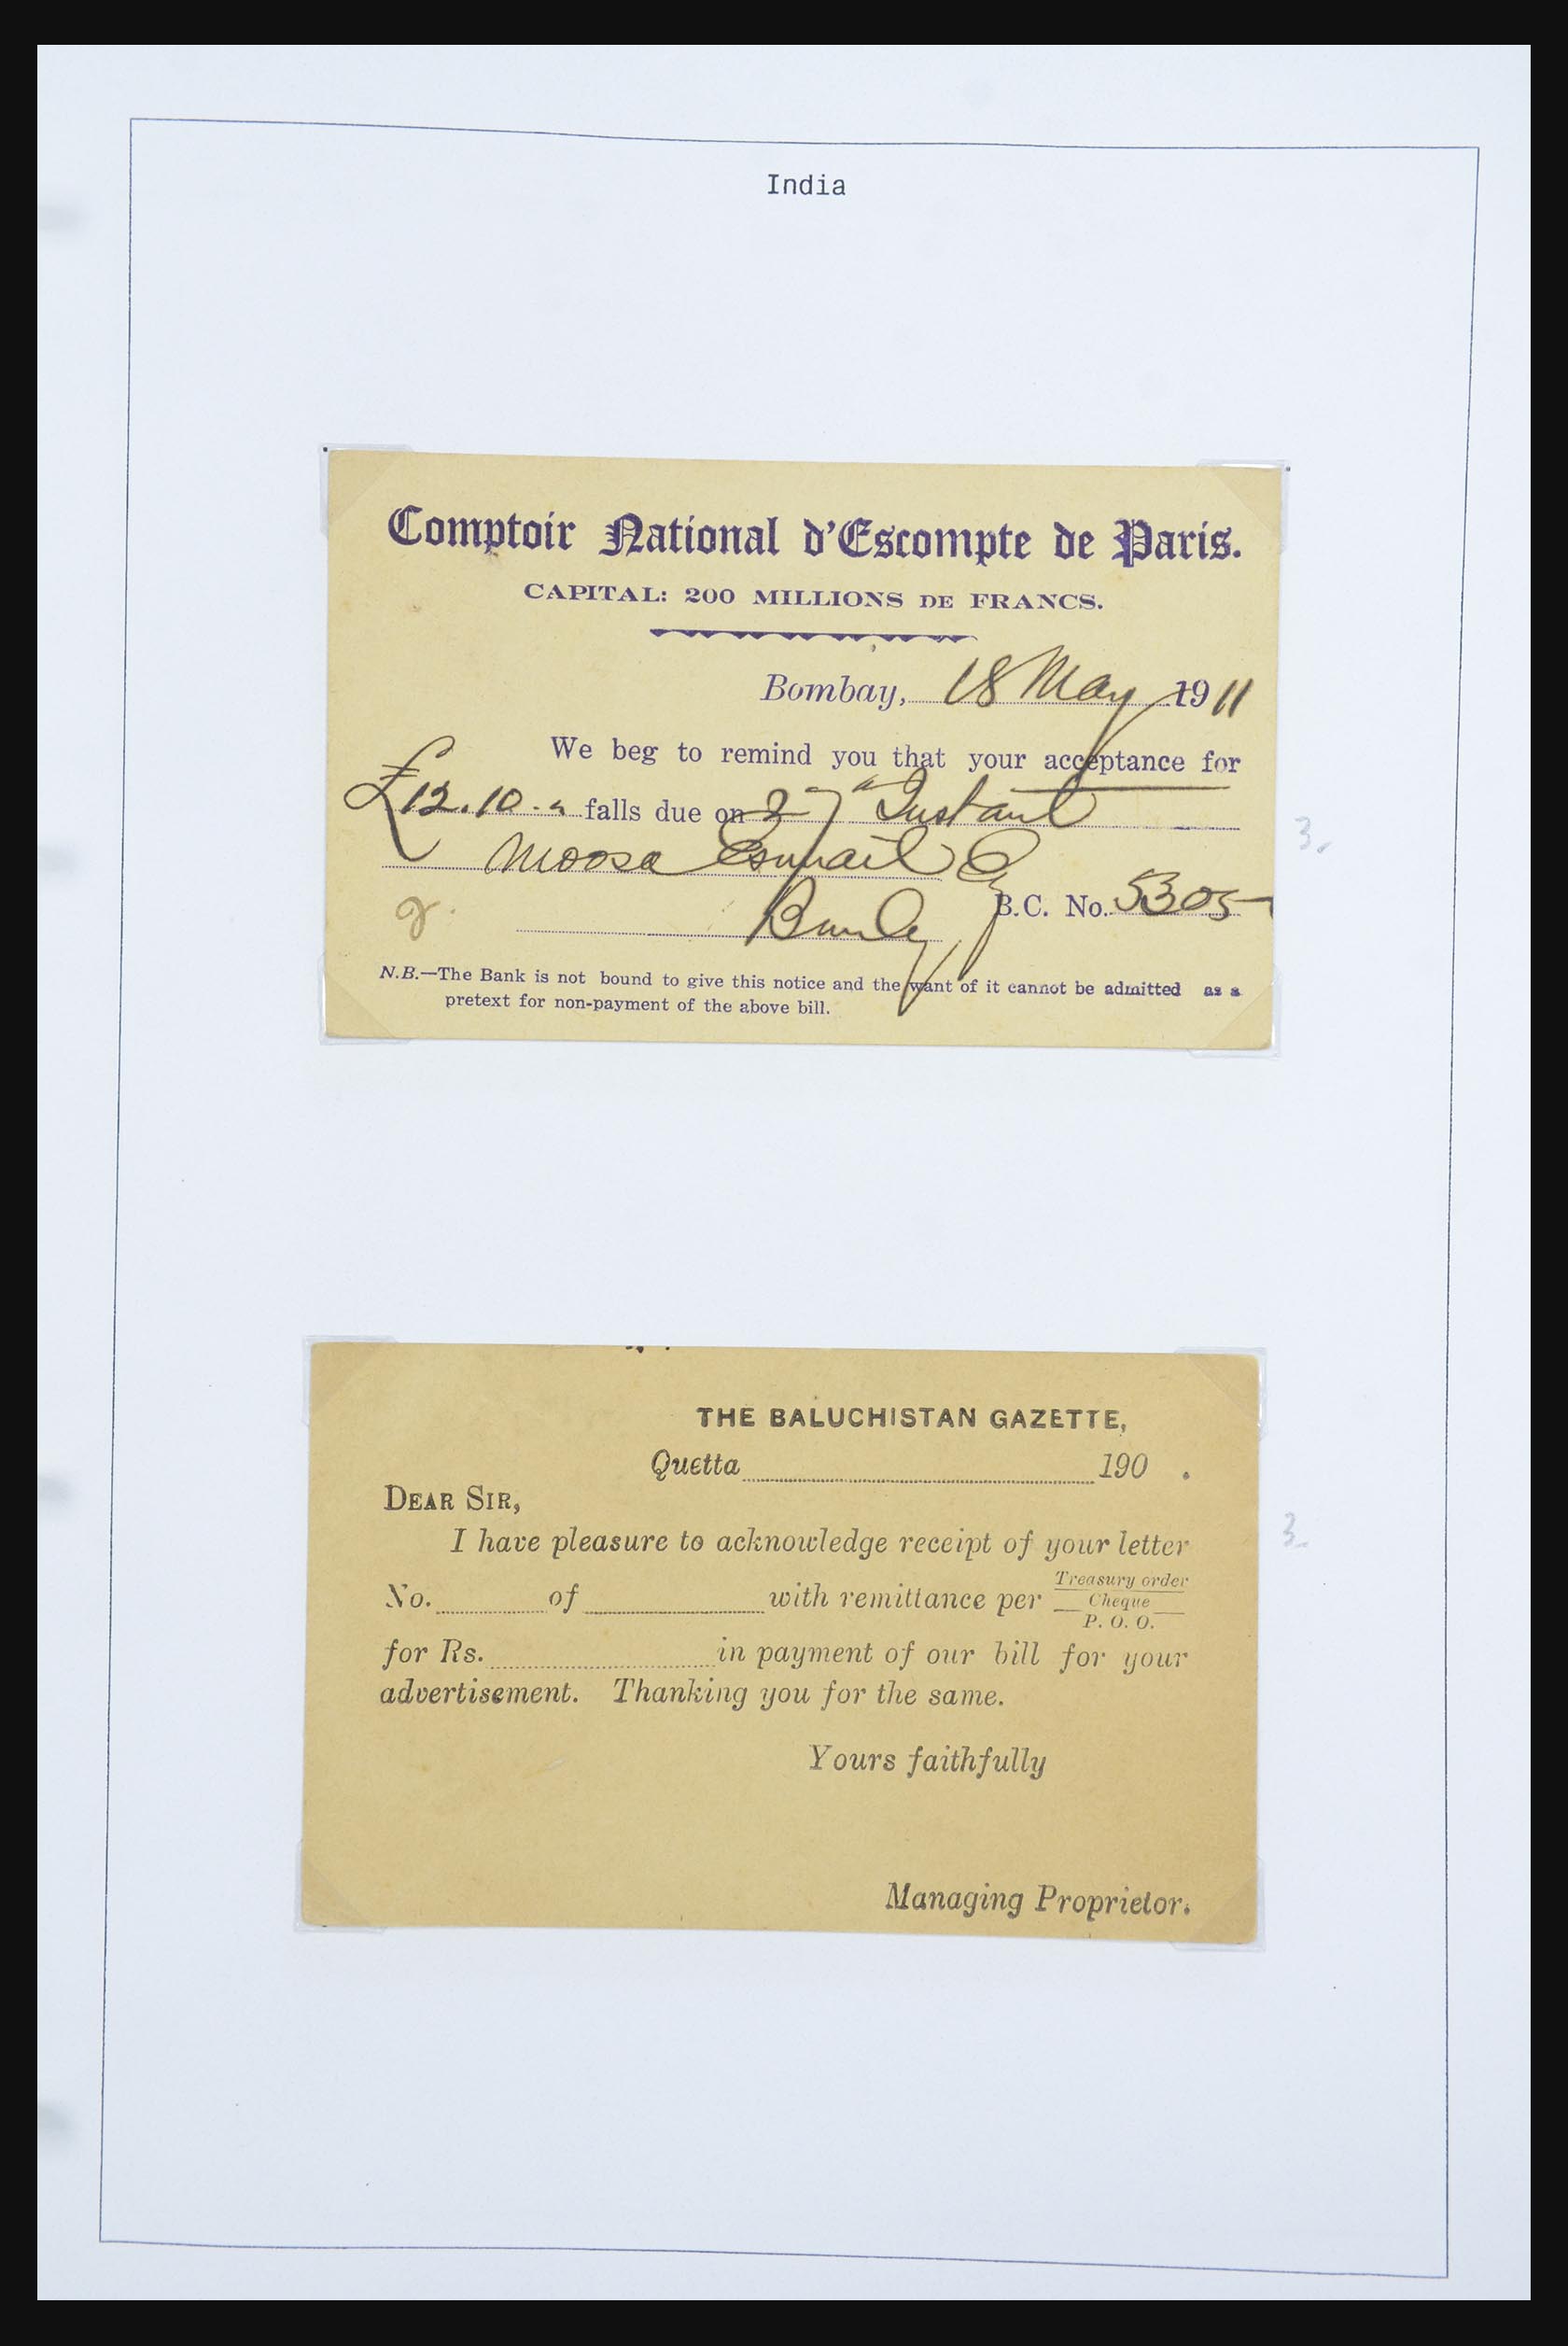 India
Comptoir National d'Escompte de Paris.
CAPITAL: 200 MILLIONS DE FRANCS.
Bombay, 18 May 1911
We beg to remind you that your acceptance for
£12.10.- falls due on 27" Instant
Moosa Esmail
B.C. No. 5305
N.B.—The Bank is not bound to give this notice and the want of it cannot be admitted as a
pretext for non-payment of the above bill.
3.
THE BALUCHISTAN GAZETTE,
Quetta 190 .
DEAR SIR,
I have pleasure to acknowledge receipt of your letter
No. of with remittance per Treasury order
Cheque
P. O. O.
for Rs. in payment of our bill for your
advertisement. Thanking you for the same.
Yours faithfully
Managing Proprietor.
3.